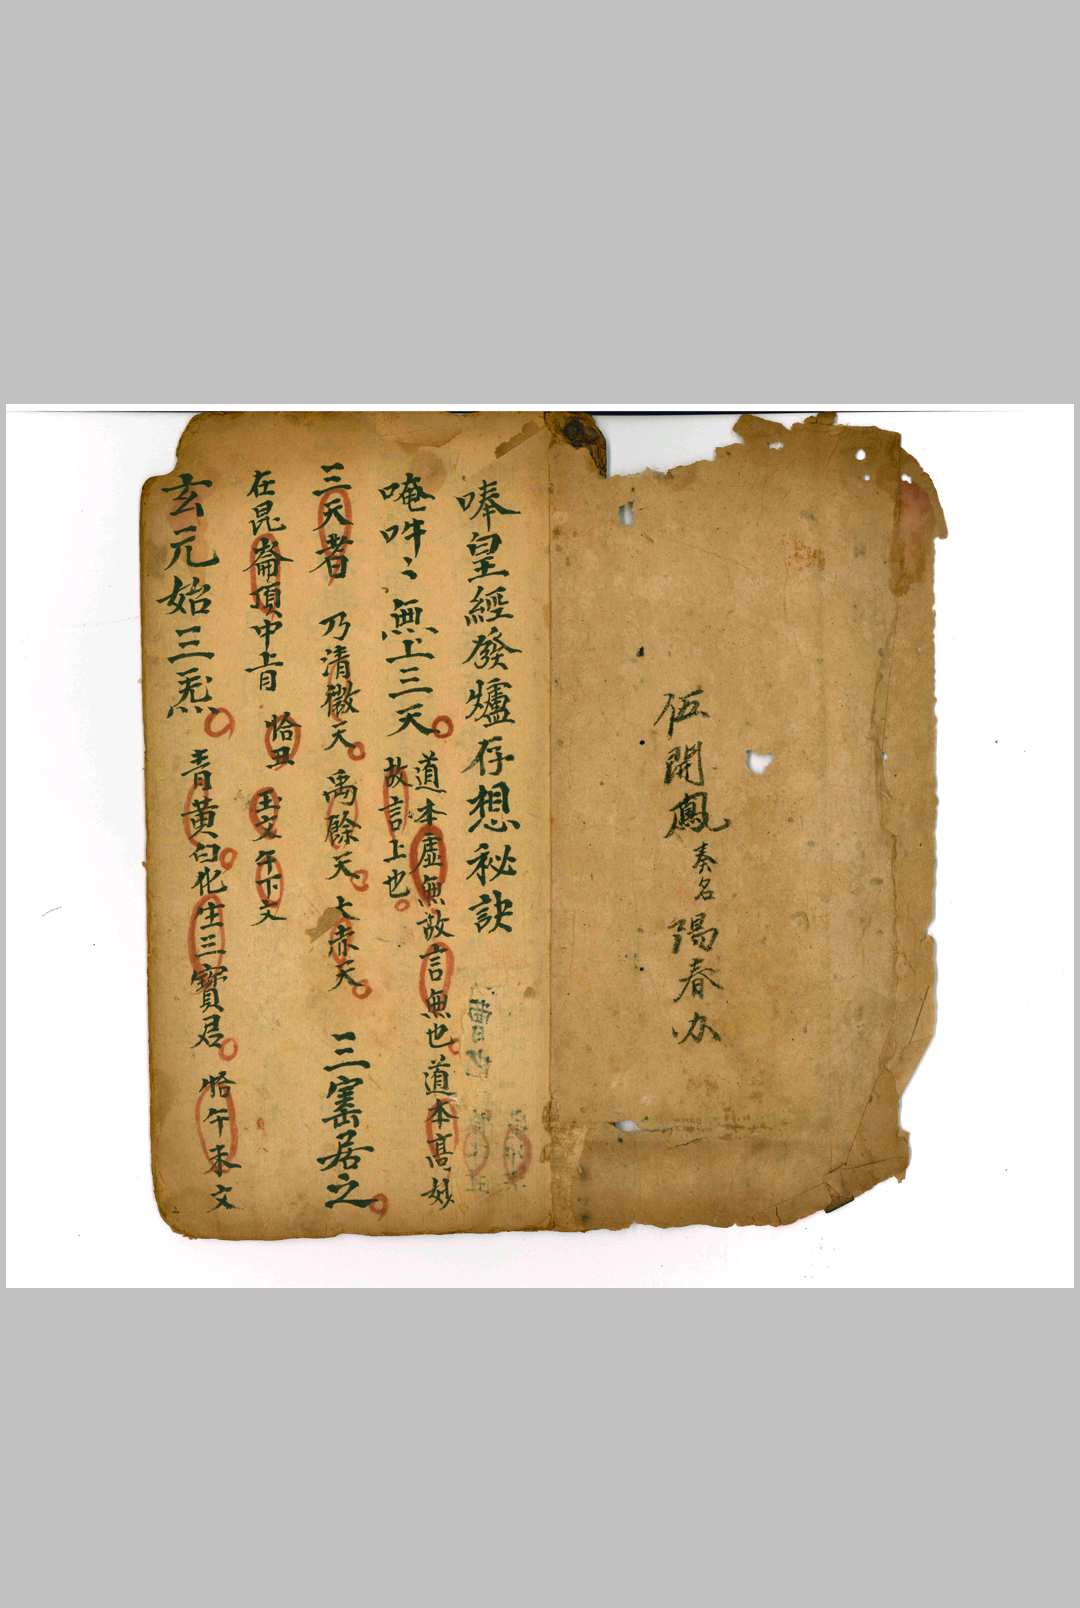 伍開鳳奏名陽春办
唪皇經發爐存想秘訣
唵吽〻無上三天
道本虛無故言無也道本髙妙
故言上也
三天者 乃清微天禹餘天大赤天 三寳居之
在昆崙頂中上
恰丑
玉文午下文
玄元始三炁 青黃白化生三寶君 恰午未文